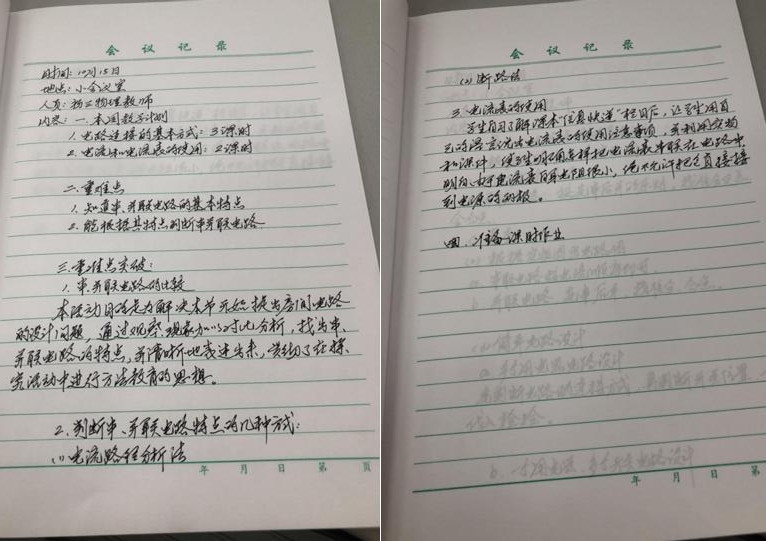 会议记录
时间：12月15日
地点：小会议室
人员：初三物理教师
内容：一.本周教学计划
1.电路连接的基本方式：3课时
2.电流和电流表的使用：2课时
二.重难点
1.知道串、并联电路的基本特点
2.能根据其特点判断串并联电路
三.重难点突破：
1.串并联电路的比较
本活动目的是为解决本节开始提出房间电路
的设计问题，通过观察现象加以对比分析，找出串、
并联电路的特点，并清晰地表述出来，渗透了在探
究活动中进行方法教育的思想。
2.判断串、并联电路特点的几种方式：
(1)电流路径分析法
年 月 日 第 页
会议记录
(2)断路法
3.电流表的使用
学生自习了解课本"信息快递"栏目后，让学生用自
己的语言说出电流表的使用注意事项，并利用实物
和课件，使学生明确怎样把电流表串联在电路中
明白由于电流表自身电阻很小，绝不允许把它直接接
到电源的两极。
四.准备课时作业
年 月 日 第 页